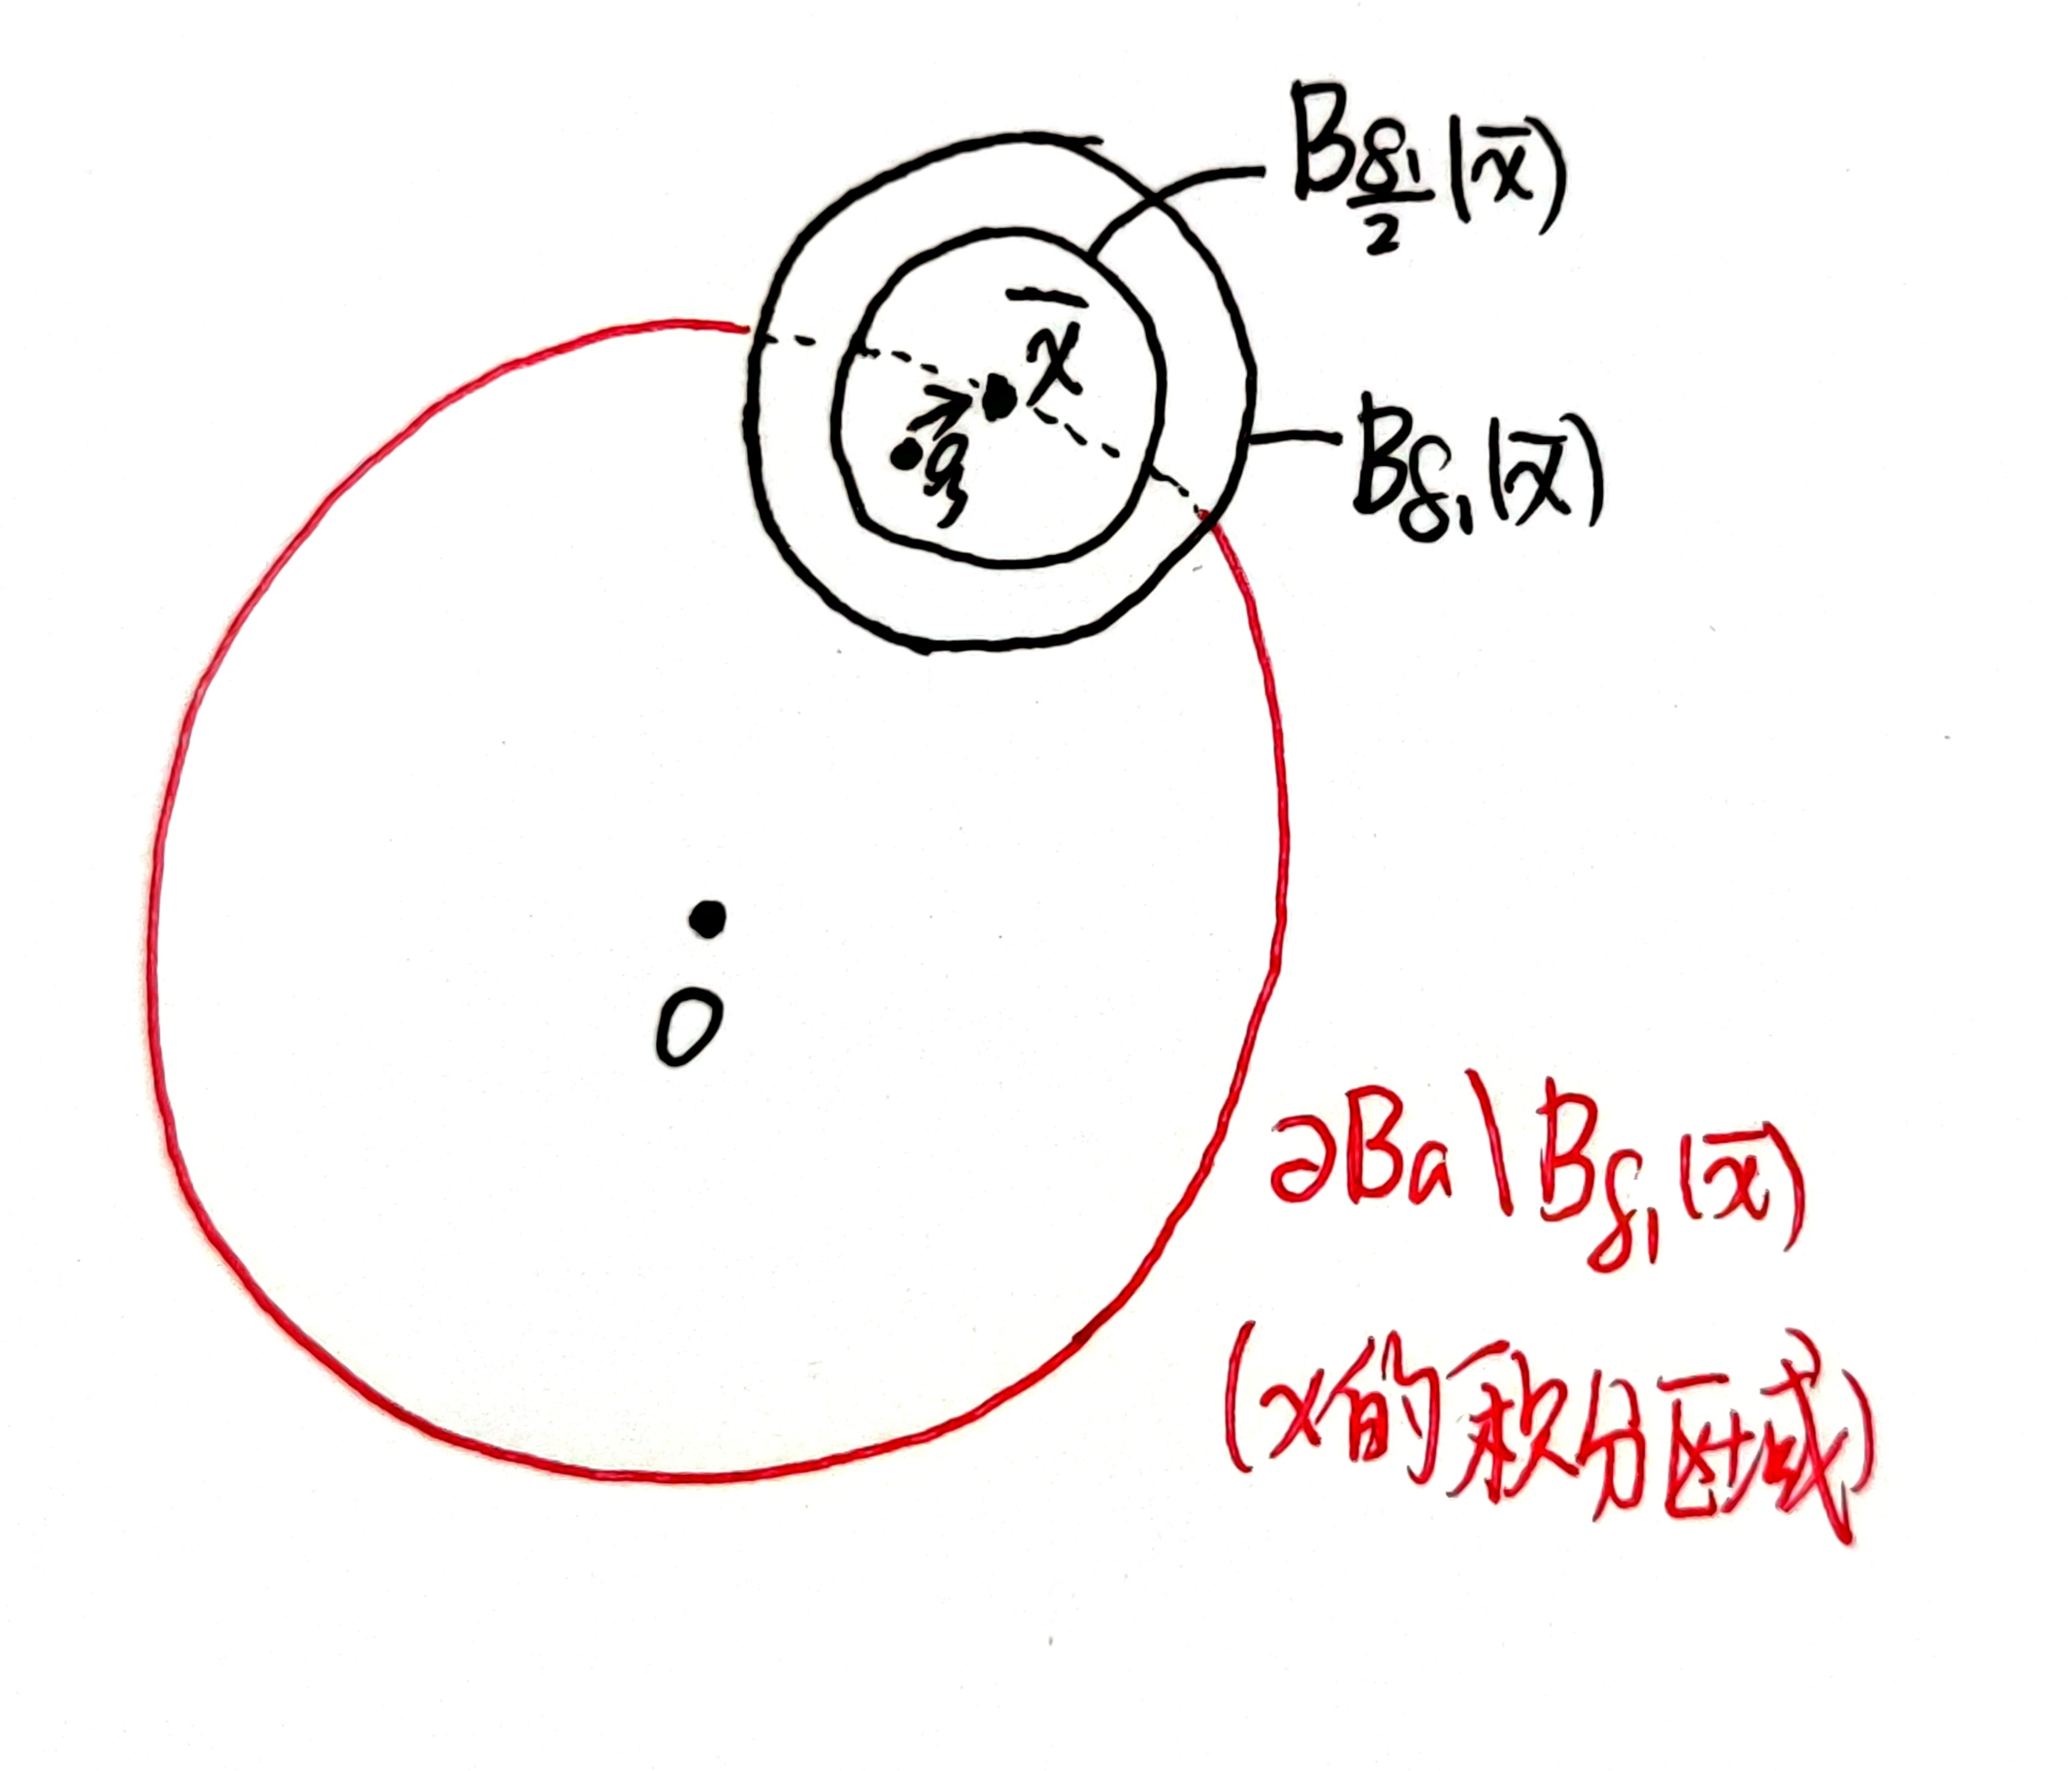 B_{δ₁/2}(x̄)
x̄
ξ
B_{δ₁}(x̄)
O
∂Ba\B_{δ₁}(x̄)
(x的积分区域)